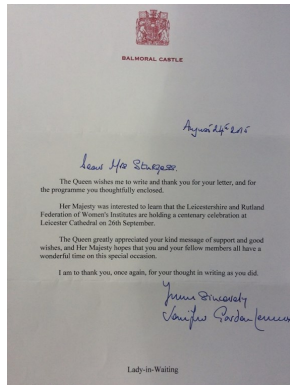 BALMORAL CASTLE
August 24th 2015
Dear Mrs Sturgess.
The Queen wishes me to write and thank you for your letter, and for
the programme you thoughtfully enclosed.
Her Majesty was interested to learn that the Leicestershire and Rutland
Federation of Women's Institutes are holding a centenary celebration at
Leicester Cathedral on 26th September.
The Queen greatly appreciated your kind message of support and good
wishes, and Her Majesty hopes that you and your fellow members all have a
wonderful time on this special occasion.
I am to thank you, once again, for your thought in writing as you did.
Yours Sincerely
Jennifer Gordon Lennox
Lady-in-Waiting